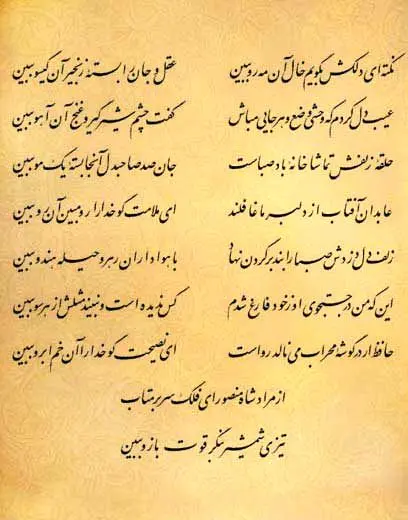 نکته‌ای دلکش بگویم خال آن مه رو ببین عقل و جان را بستهٔ زنجیر آن گیسو ببین
عیب دل کردم که وحشی وضع و هر جایی مباش گفت چشم شیرگیر و غنج آن آهو ببین
حلقهٔ زلفش تماشاخانهٔ باد صباست جان صد صاحبدل آنجا بستهٔ یک مو ببین
عابدان آفتاب از دلبر ما غافلند ای ملامت گو خدا را رو مبین آن رو ببین
زلف دل دزدش صبا را بند بر گردن نهاد با هواداران رهرو حیلهٔ هندو ببین
این که من در جستجوی او ز خود فارغ شدم کس ندیده است و نبیند مثلش از هر سو ببین
حافظ ار در گوشهٔ محراب می نالد رواست ای نصیحت گو خدا را آن خم ابرو ببین
از مراد شاه منصور ای فلک سر بر متاب
تیزی شمشیر بنگر قوت بازو ببین